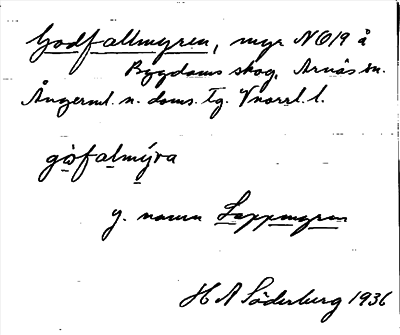 Godfallmyren, myr NO19 å
Bygdoms skog, Arnäs sn.
Ångerml. n. doms. Tg. Vnorrl. l.
gòfalmýra
y. namn Lappmyren
H A Söderberg 1936